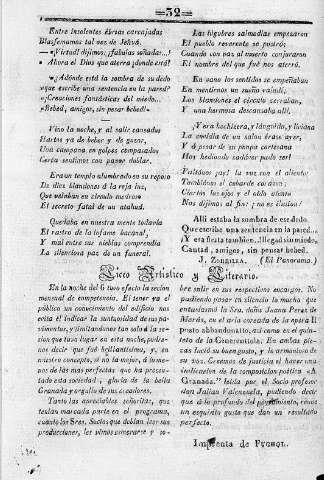 =32=
Entre insolentes ébrias carcajadas
Blasfemamos tal vez de Jehvá.
—«Virtud! dijimos; ¡fabulas soñadas...!
¿Adónde está la sombra de su dedo
que escribe una sentencia en la pared?
«¡Creaciones fantásticas del miedo...
«Bebed, amigos, sin pesar bebed!»
Vino la noche, y al salir cansados
Hartos ya de beber y de gozar,
Una campana en golpes compasados
Cerca sentimos con pavor doblar.
Era un templo alumbrado su reposo
De diez blandones á la roja luz,
Que velaban en círculo
El secreto fatal de un atahud.
Quedaba en nuestra mente todavía
El rastro de la infame bacanal,
Y mal entre sus nieblas comprendía
La silenciosa paz de un funeral.
Las lúgubres salmodias empezaron
El pueblo reverente se postró;
Cuando con voz al muerto conjuraron
El nombre del que fué nos aterró.
En vano los sentidos se empeñaban
En mentirnos un sueño
Los blandones el círculo cerraban,
Y una hermosa descansaba allí.
Y era hechicera, y lánguida, y liviana
La omitida de un salon
Y á pesar de su pompa cortesana
Hoy hediondo cadáver pudo ser!
Faltónos ¡ay! la voz en el aliento;
Tambien el cobarde corazon;
Ciertos los ojos y el oido atento
Nos dijimos al fin: ¡no es ilusion!
Allí estaba la sombra de ese dedo
Que escribe una sentencia en la pared...
Y era fiesta tambien. ¡Llegad sin miedo,
Cantad, amigos, sin pesar bebed!
J. ZORRILLA. (El Panorama.)
Liceo Artistico y Literario.
En la noche del 6 tuvo efecto la sesion
mensual de competencia. El tener ya el
público un conocimiento del edificio nos
evita el indicar la suntuosidad de sus
y limitandonos tan solo á la se-
sion que tuvo lugar en esta noche, pudie-
mos decir que fué brillantísima, y, en
nuestro concepto, si no la mayor, á lo me-
nos de las mas perfectas que ha presen-
tado esta sociedad, gloria de la bella
Granada y orgullo de sus creadores.
Tanto las apreciables señoritas, que
tenian marcada parte en el programa,
cuanto los Sres. Socios que debian leer sus
producciones, les vimos
bre salir en sus respectivos encargos. No
pudiendo pasar en silencio lo mucho que
entusiasmó la Sra. doña Juana Perez de
en el aria coreada de la ópera Il
posto abbandonatto, así como en el quin-
teto de la Generentiola. En ambas pie-
zas lució su buen gusto, y la harmonia de
su voz. Creemos de justicia el hacer una
indicacion de la composicion poética «A
Granada.» leida por el Socio profesor
don Julian Valenzuela, pudiendo decir
que á lo profundo del pensamiento, reune
un esquisito gusto que dan un resultado
perfecto.
Imprenta de PUCHOL.